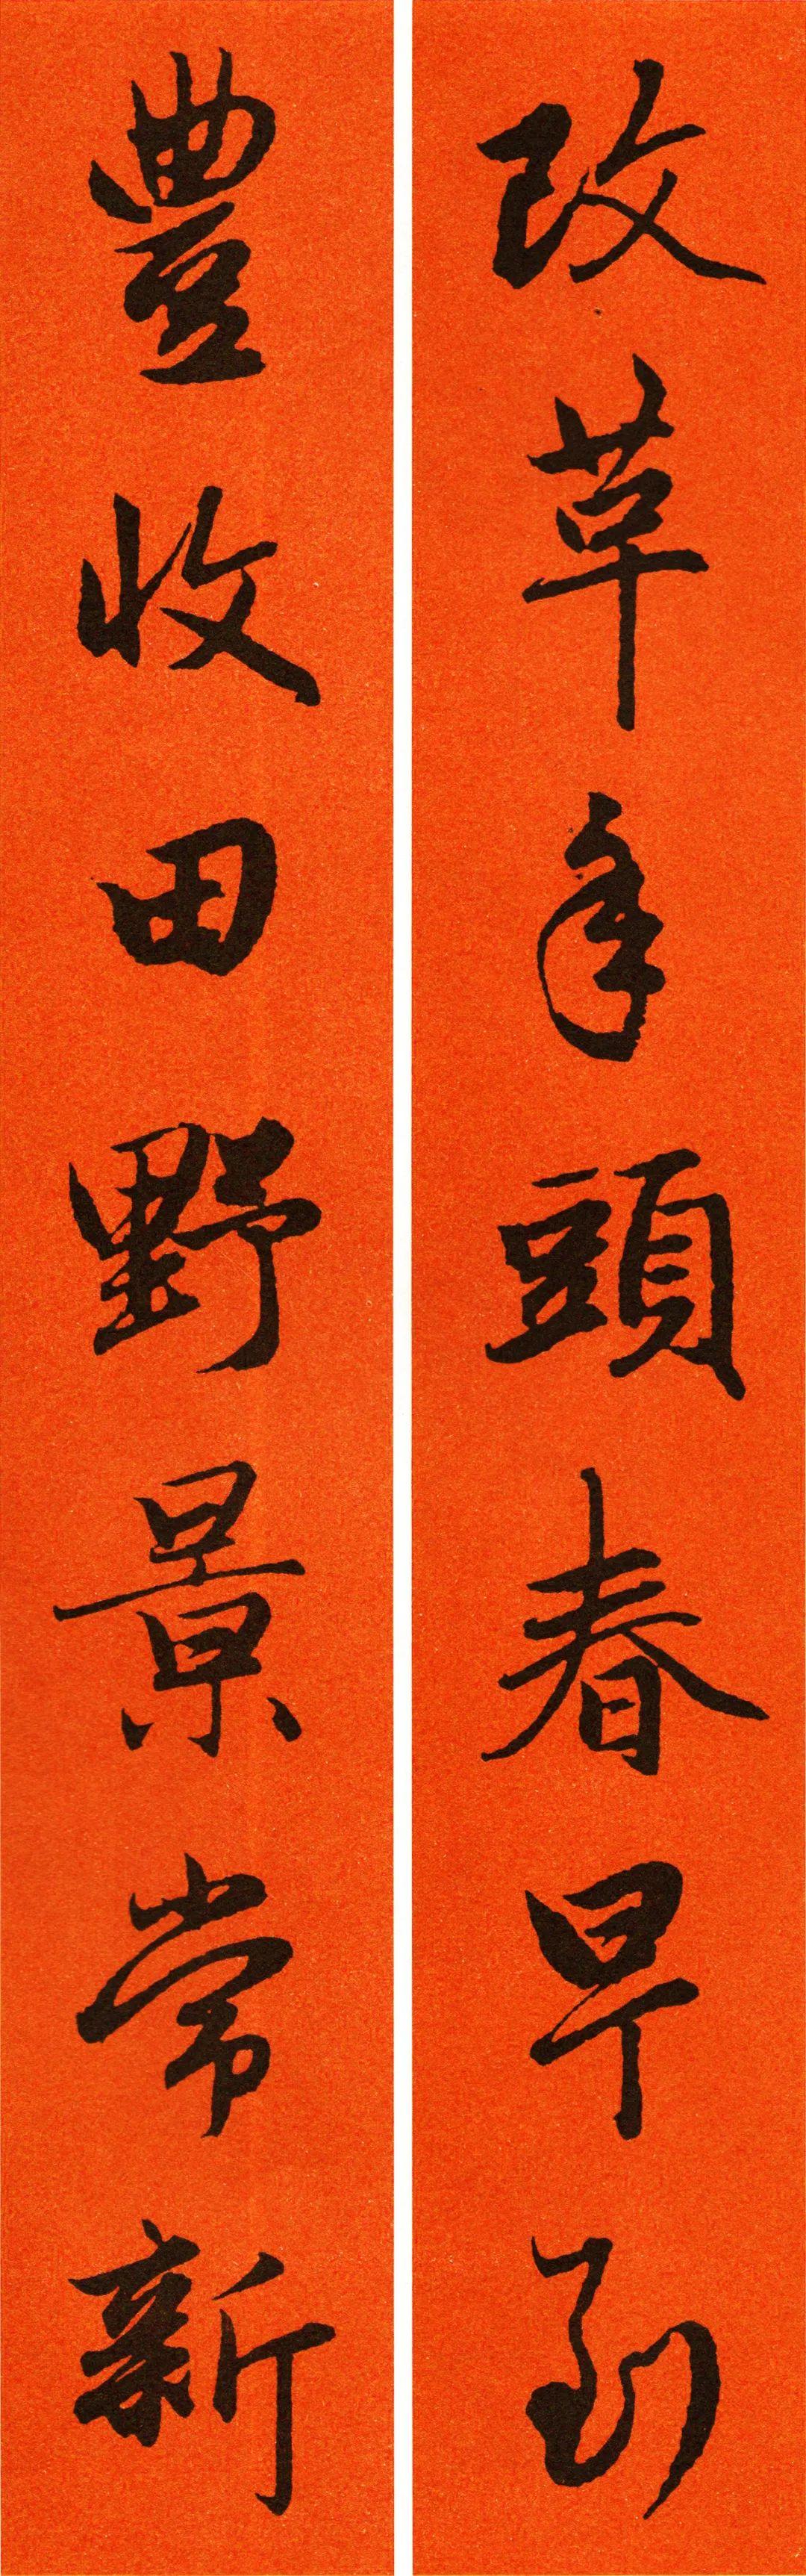 改革年頭春早到
豐收田野景常新